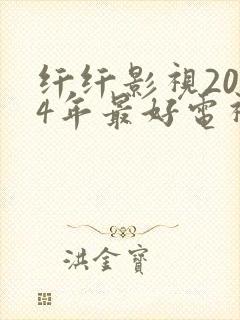 纤纤影視20
4年最好電視
洪金寶